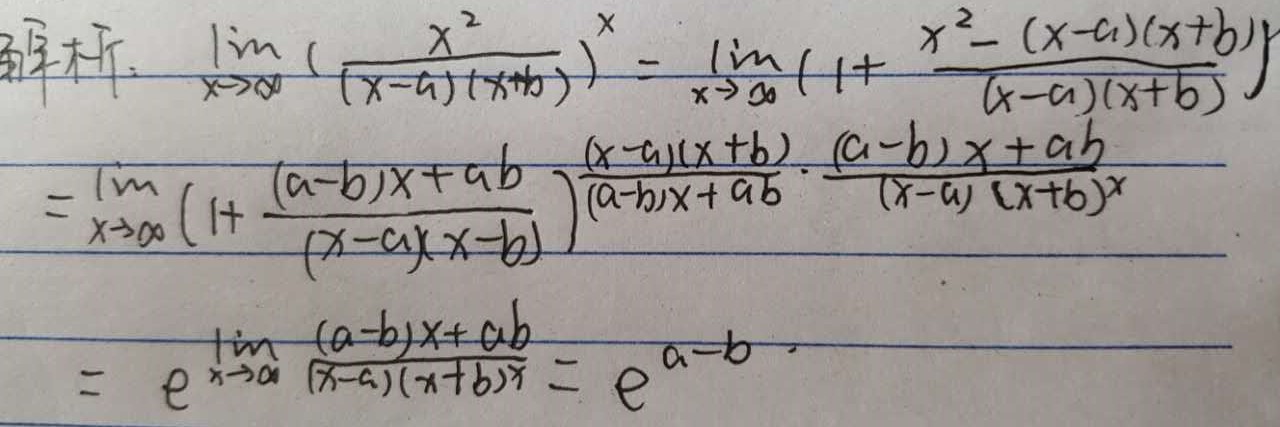 解析. lim x→∞ (x²/((x-a)(x+b)))^x = lim x→∞ (1+ (x²-(x-a)(x+b))/((x-a)(x+b)))
= lim x→∞ (1+ ((a-b)x+ab)/((x-a)(x-b)))^((x-a)(x+b)/((a-b)x+ab) · ((a-b)x+ab)/((x-a)(x+b)x))
= e^(lim x→∞ ((a-b)x+ab)/((x-a)(x+b)x)) = e^(a-b).